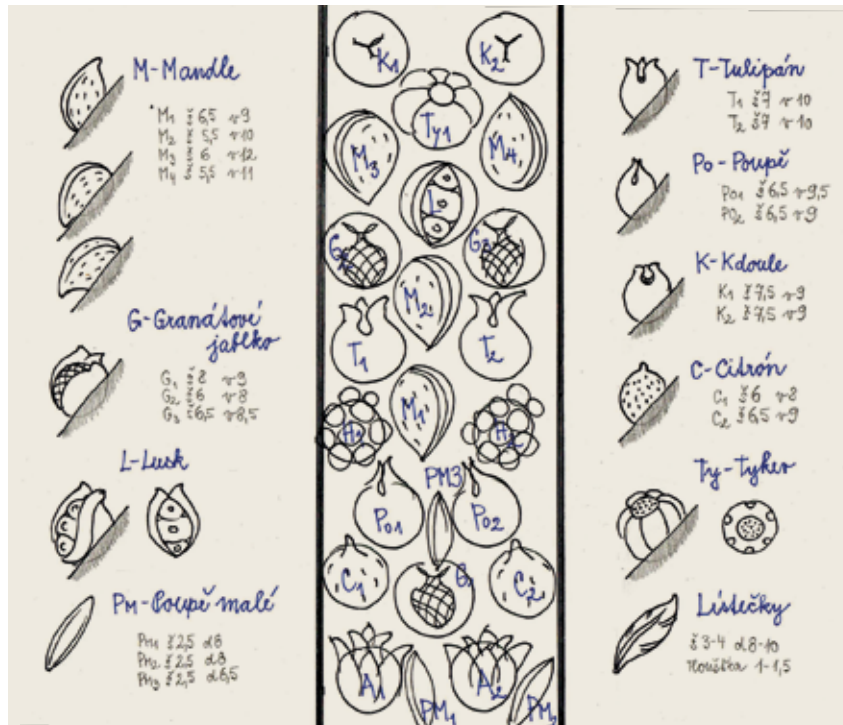 M-Mandle
M1 š6,5 v9
M2 š5,5 v10
M3 š6 v12
M4 š5,5 v11
G-Granátové
jablko
G1 š8 v9
G2 š6 v8
G3 š6,5 v8,5
L-Lusk
PM-Poupě malé
PM1 š2,5 d8
PM2 š2,5 d8
PM3 š2,5 d6,5
K1 K2
Ty1
M3 M4
L
G2 G3
M2
T1 T2
M1
H1 H2
PM3
Po1 Po2
C1 C2
G1
A1 A2
PM1
T-Tulipán
T1 š7 v10
T2 š7 v10
Po-Poupě
Po1 š6,5 v9,5
PO2 š6,5 v9
K-Kdoule
K1 š7,5 v9
K2 š7,5 v9
C-Citrón
C1 š6 v8
C2 š6,5 v9
Ty-Tykev
Lístečky
š3-4 d8-10
tloušťka 1-1,5